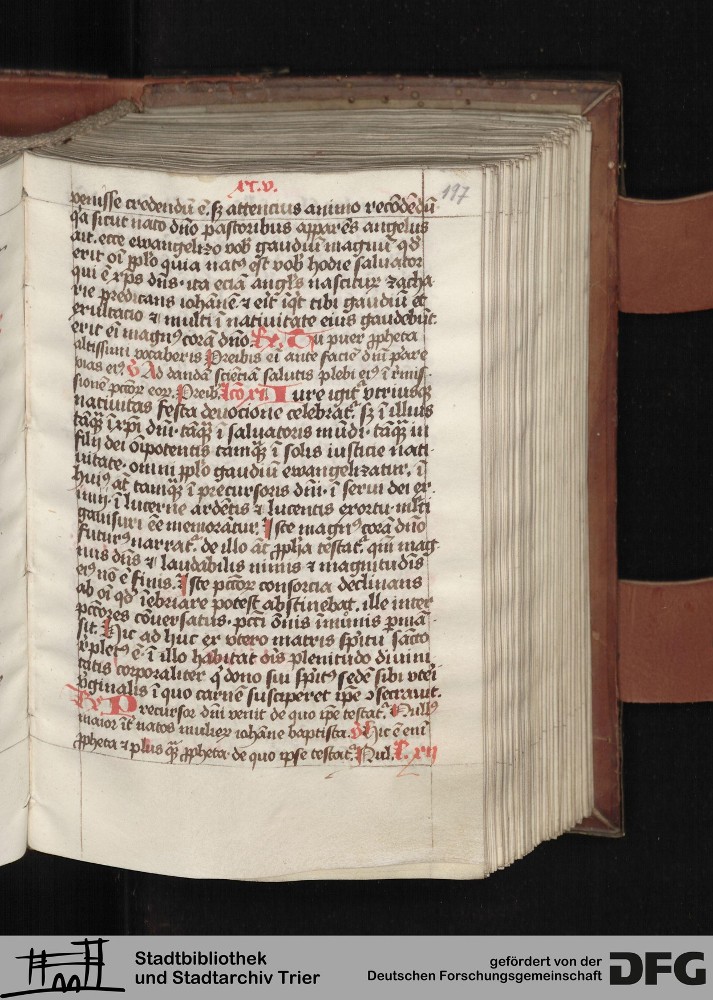 197
penisse credendū ē. sꝫ attencius animo recōdēdū
q̄a sicut nato dn̄o pastoribus apparēs angelus
ait. ecce ewangelizo vob̄ gaudiū magnū qd̄
erit oī pp̄lo quia natꝰ est vob̄ hodie saluator
qui ē xp̄s dn̄s. ita eciā angl̄s nascitur zacha
rie predicans iohānē ⁊ eīt īq̄t tibi gaudiū et
exultacio ⁊ multi ī natiuitate eius gaudebūt.
erit eī magnꝰ corā dn̄o. Rx. Tu puer ꝓpheta
altissimi vocaberis Preibis eī ante faciē dn̄i pare
vias eiꝰ. V Ad dandā sciēciā salutis plebi eiꝰ ī r̄mis
sionē pctōr eor. Preib.
Iure igit᷑ vtriusqꝫ
natiuitas festa deuocione celebrat᷑. sꝫ ī illius
tāqꝫ ī xp̄i dn̄i. tāqꝫ ī saluatoris mūdi. tāqꝫ in
filij dei oīpotentis tamqꝫ ī solis iusticie nati
uitate. omni pp̄lo gaudiū ewangelizatur. ī
huiꝰ at̄ tamqꝫ ī precursoris dn̄i. ī serui dei ex
imij. ī lucerne ardētis ⁊ lucentis exortu m̄lti
gauisuri eē memorātur. Iste magnꝰ corā dn̄o
futurꝰ narrat᷑. de illo āt ꝓph̄a testat᷑. qm̄ mag
nus dn̄s ⁊ laudabilis nimis ⁊ magnitudīs
eiꝰ nō ē finis. Iste pctōr consorcia declinans
ab oī qd̄ īebriare potest abstinebat. ille inter
pctōres cōuersatus. pcc̄i ōnis īmūnis p̄mā
sit. Hic ad huc ex vtero matris sp̄itu sācto
r̄pletꝰ ē. ī illo habitat oīs plenitudo diuini
tatis corporaliter q̄ dono sui sp̄itꝰ sedē sibi vteri
v̄ginalis ī quo carnē susciperet ip̄e ꝯsecrauit.
Rx. Precursor dn̄i venit de quo ip̄e testat᷑. Nullꝰ
maior īt̄ natos mulierꝫ iohāne baptista. V Hic ē enī
ꝓpheta ⁊ plus qꝫ ꝓpheta. de quo ipse testat᷑. Nul. L. xij
Stadtbibliothek
und Stadtarchiv Trier
gefördert von der
Deutschen Forschungsgemeinschaft
DFG